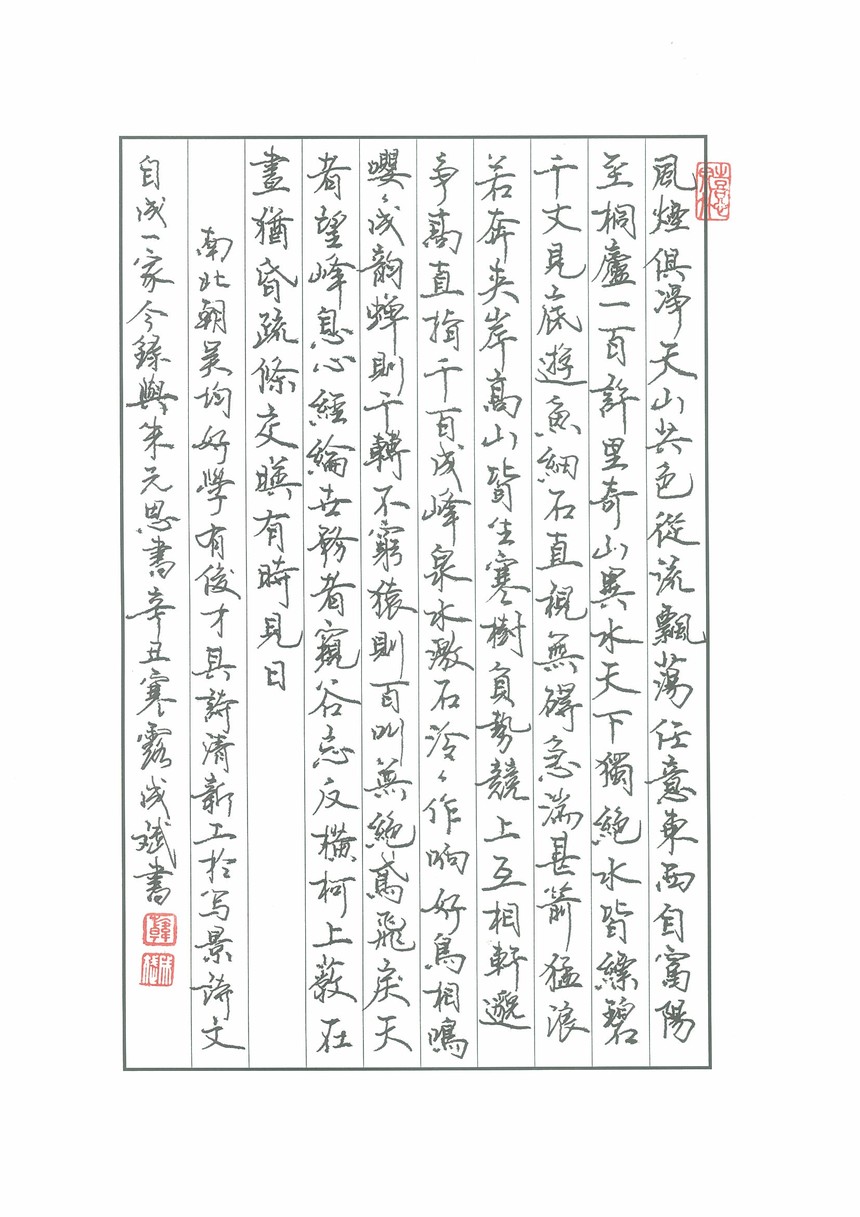 風煙俱淨天山共色從流飄蕩任意東西自富陽
至桐廬一百許里奇山異水天下獨絕水皆縹碧
千丈見底遊魚細石直視無礙急湍甚箭猛浪
若奔夹岸高山皆生寒樹負勢競上互相軒邈
爭高直指千百成峰泉水激石泠々作响好鳥相鳴
嚶々成韵蟬則千轉不窮猿則百叫無絕鳶飛戾天
者望峰息心經綸世務者窺谷忘反橫柯上蔽在
晝猶昏疏條交暎有時見日
南北朝吴均好學有俊才其詩清新工於写景詩文
自成一家今錄與朱元思書辛丑寒露成斌書